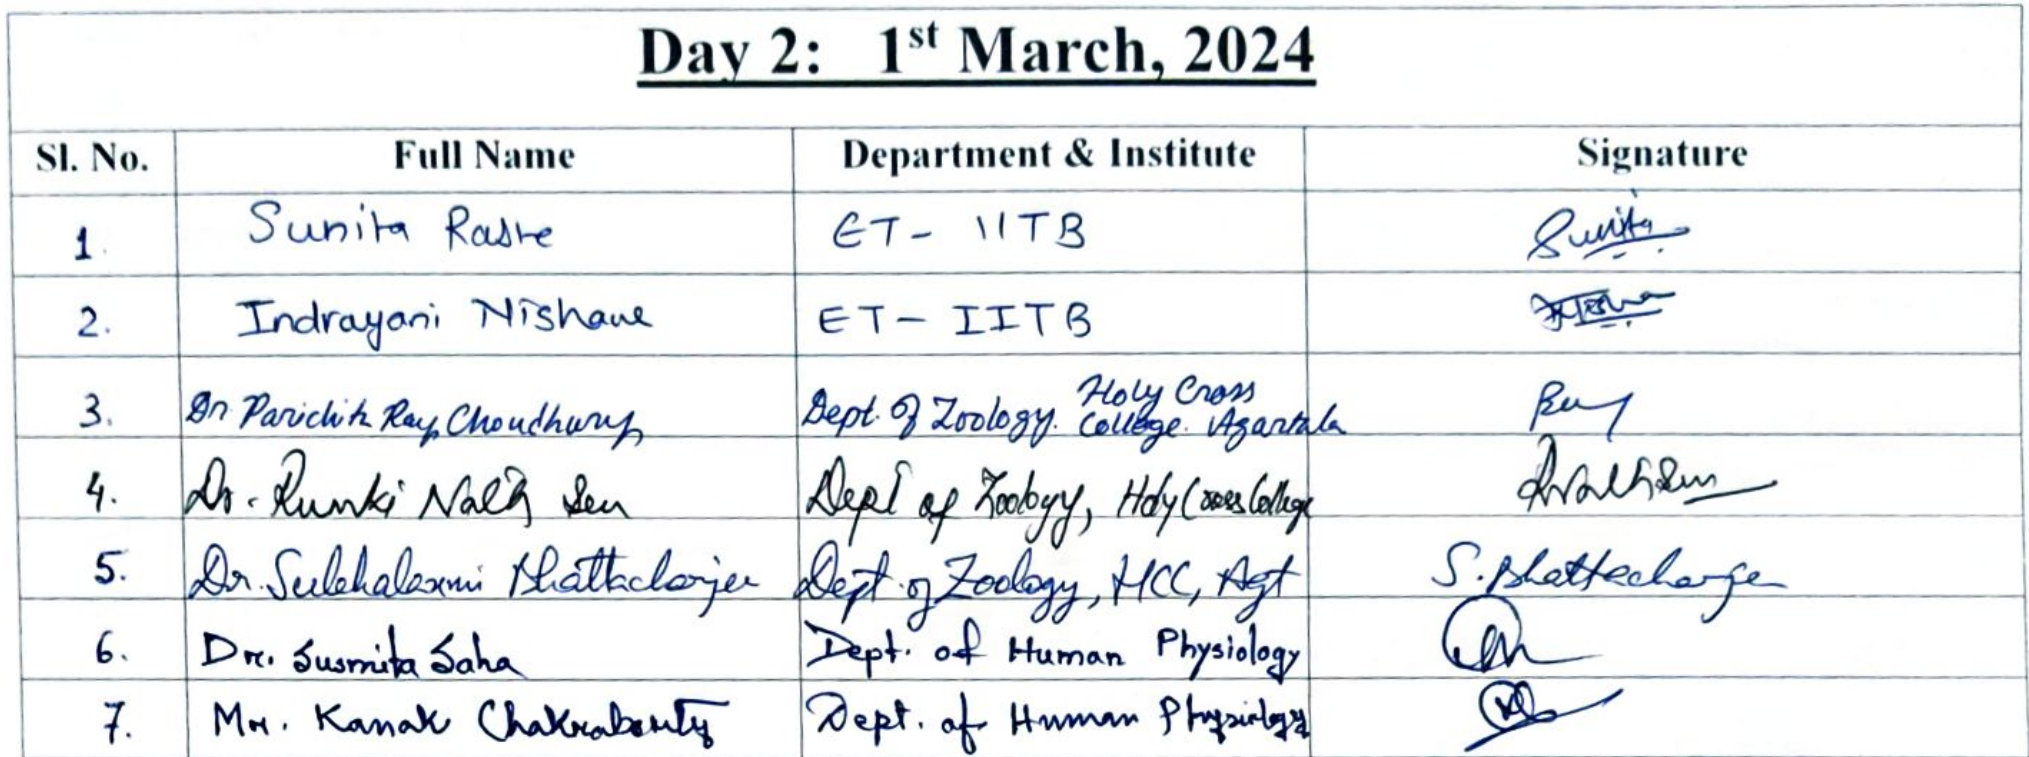 Day 2: 1st March, 2024
Sl. No. Full Name Department & Institute Signature
1. Sunita Raste ET- IITB Sunita
2. Indrayani Nishane ET- IITB
3. Dr Parichita Ray Choudhury Dept. of Zoology. Holy Cross College. Agartala Ray
4. Dr. Runki Nath Sen Dept of Zoology, Holy Cross College RNathSen
5. Dr. Sulekhalaxmi Bhattacharjee Dept. of Zoology, HCC, Agt S. Bhattacharjee
6. Dr. Susmita Saha Dept. of Human Physiology
7. Mr. Kanak Chakraborty Dept. of Human Physiology